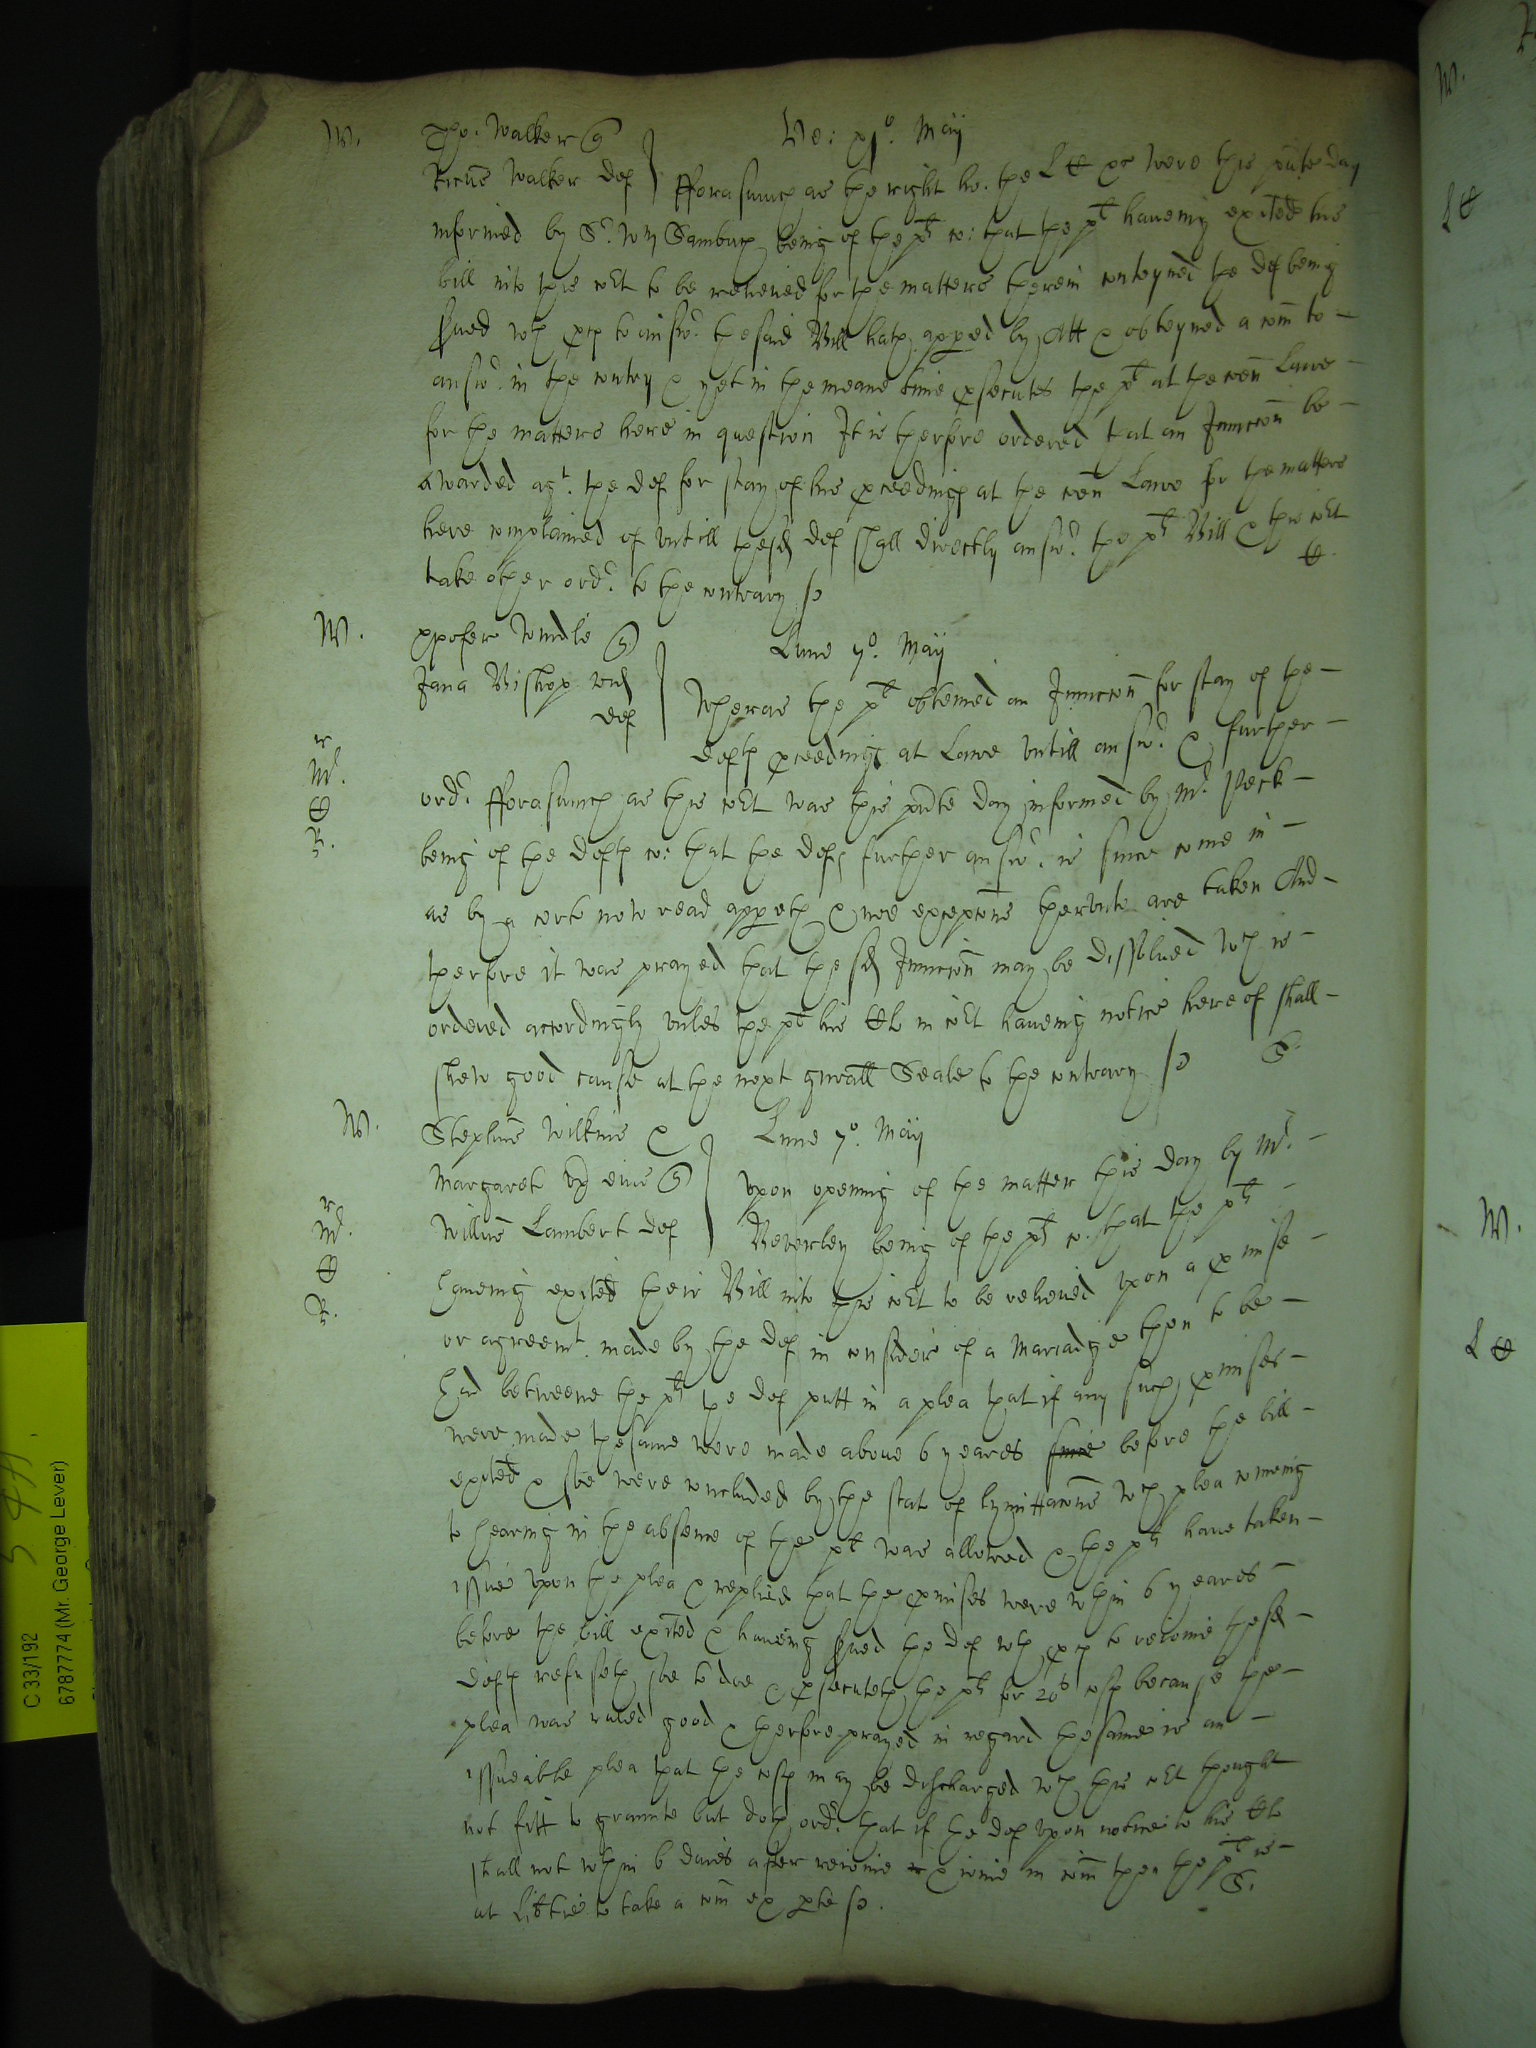 W. Tho. Walker q Ve: xj°. Maij
Ricūs Walker def fforasmuch as the right ho. the L ℭ &c were this pñte day
informed by Sr. Wm Sambach being of the plt co: that the plt haueing exited his
bill into this cort to be releiued for the matters therein conteyned the def being
serued wth pces to answr. the said Bill hath apped by Att & obteyned a com̄ to
answr. in the contry & yet in the meane time psecutes the plt at the com̄ Lawe
for the matters here in question It is therfore ordered that an Iniuncc̄on be
awarded agt. the def for stay of his pceedings at the com̄ Lawe for the matters
here complained of vntill the sd def shall directly answr. the plts Bill & this cort
take other ordr. to the contrary
W. xpofer Windle q Lune 7°. Maij
Jana Bishop vid
def Wheras the plt obteined an Iniuncc̄on for stay of the
defts pceedings at Lawe vntill answr. & further
ordr. fforasmuch as this cort was this pñte day informed by Mr. Peck
being of the defts co: that the defs further answr. is since come in
as by a certe now read appeth & noe excepc̄ons thervnto are taken And
therfore it was prayed that the sd Iniuncc̄on may be dissolued wch is
ordered accordingly vnles the plt his Att in cort haueing notice hereof shall
shew good cause at the next gen̄all Seale to the contrary
W. Stephūs Wilkins & Lune 7°. Maij
Margaret vx eius q Vpon opening of the matter this day by Mr.
Willūs Lambert def Beverley being of the plts co. that the plts
haueing exited their Bill into this cort to be releiued vpon a pmise
or agreemt. made by the def in considerac̄on of a Mariadge then to be
had betweene the plts the def putt in a plea that if any such pmises
were made the same were made aboue 6 yeares since before the bill
exited & soe were concluded by the stat of lymittac̄ons wch plea comeing
to hearing in the absence of the plt was allowed & the plts haue taken
issue vpon the plea & replied that the pmises were wthin 6 yeares
before the bill exited & haueing serued the def wth pces to reioine the sd
deft refuseth soe to doe & psecuteth the plts for 20s costs because the
plea was ruled good & therfore prayed in regard the same is an
issueable plea that the costs may be discharged wch this cort thought
not fitt to graunte but doth ordr. that if the def vpon notice to his Att
shall not wthin 6 daies after reioine & ioine in com̄ then the plt is
at lib̄tie to take a com̄ ex pte
C 33/192
6787774 (Mr. George Lever)